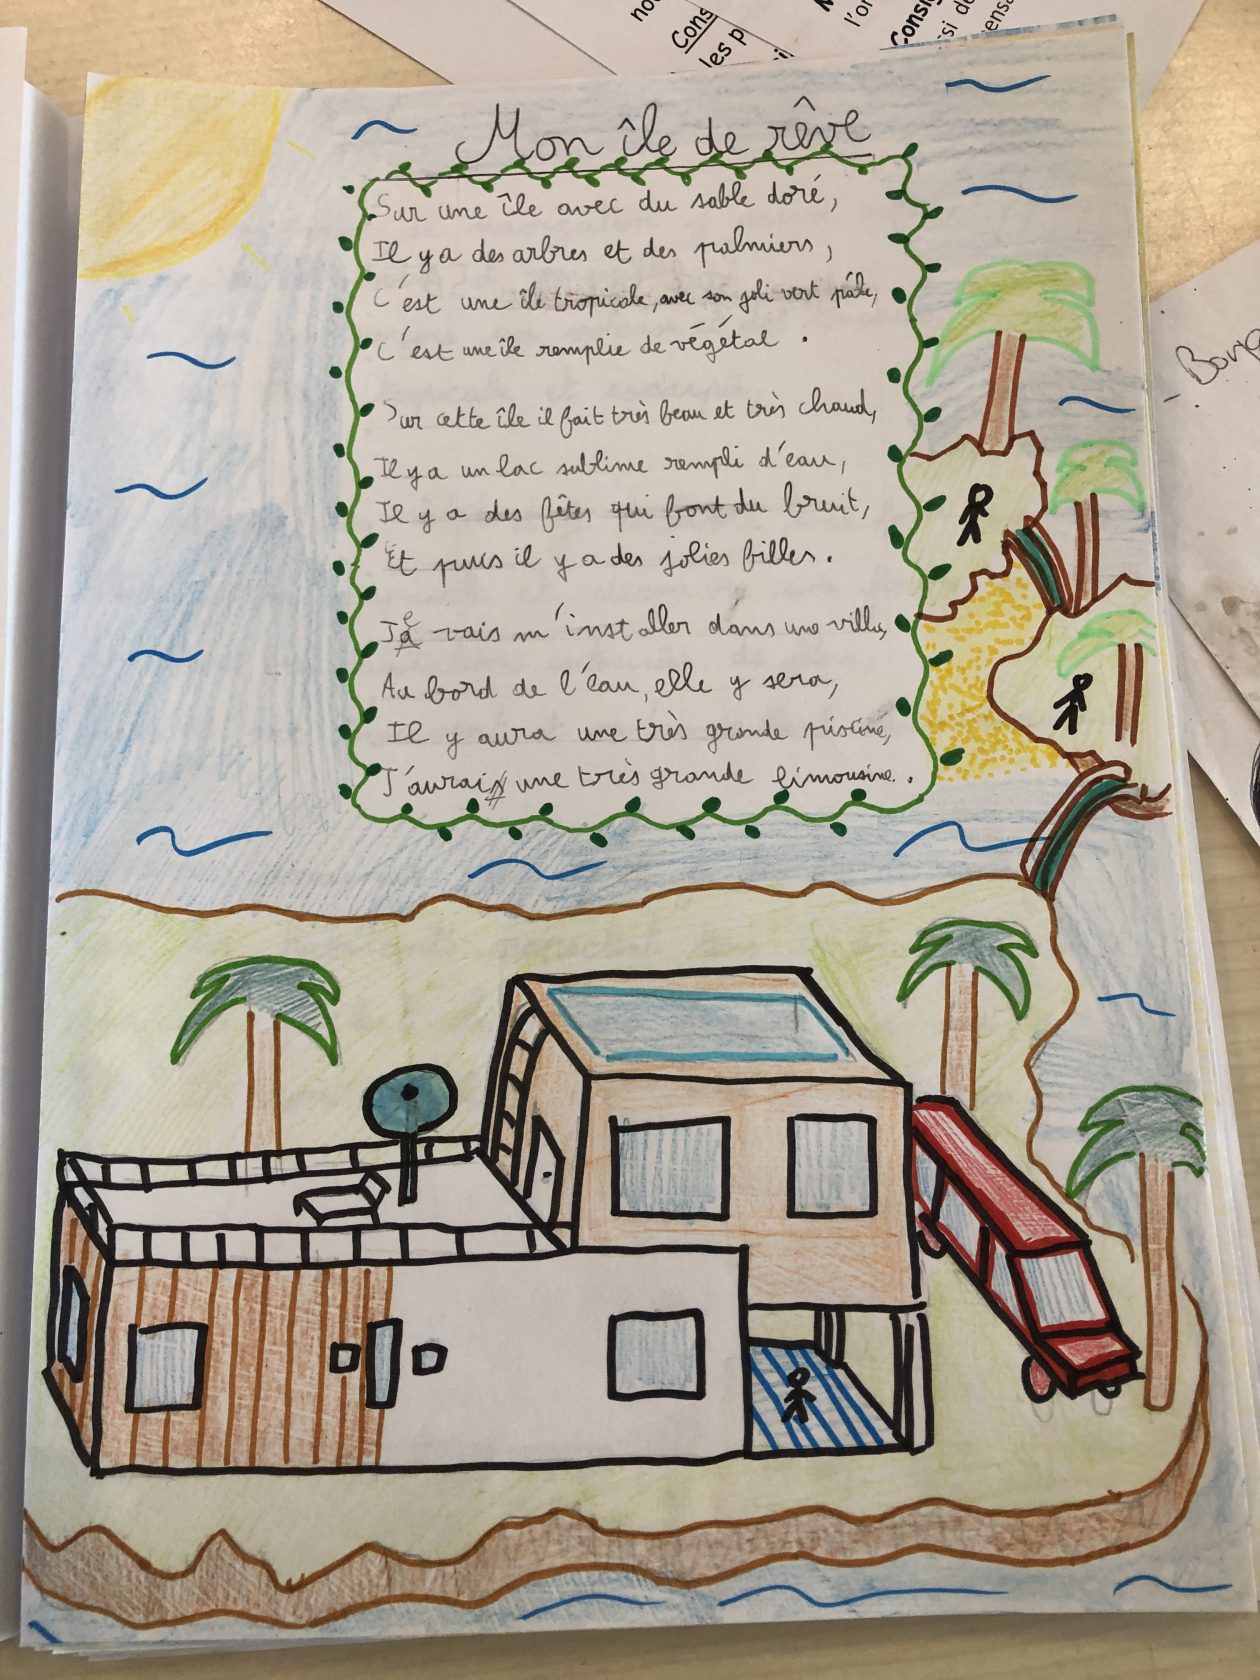 Mon île de rêve
Sur une île avec du sable doré,
Il y a des arbres et des palmiers,
C'est une île tropicale, avec son joli vert pâle,
C'est une île remplie de végétal.
Sur cette île il fait très beau et très chaud,
Il y a un lac sublime rempli d'eau,
Il y a des fêtes qui font du bruit,
Et puis il y a des jolies filles.
Je vais m'installer dans une villa,
Au bord de l'eau, elle y sera,
Il y aura une très grande piscine,
J'aurai une très grande limousine.
Cons
les p
l'or
Consig
si de
ensa
Bonj